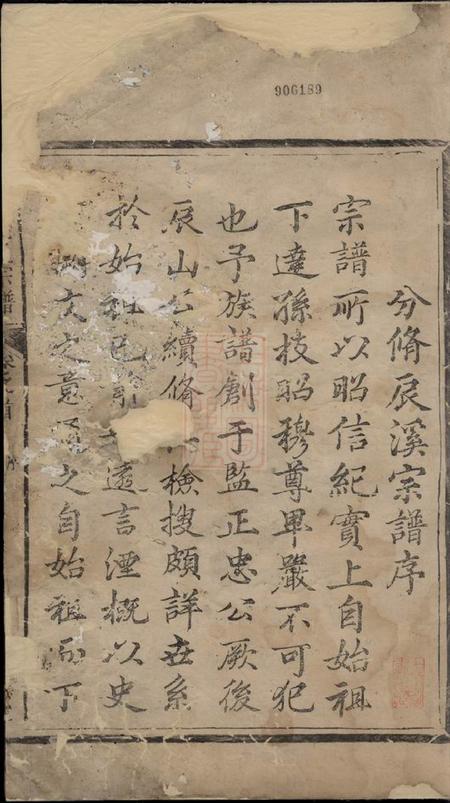 906189
分脩辰溪宗譜序
宗譜所以昭信紀實上自始祖
下逮孫枝昭穆尊卑嚴不可犯
也予族譜創于監正忠公厥後
辰山公續脩 檢搜頗詳世系
於始祖已 遠言湮概以史
闕文之意 之自始祖而下
宗譜